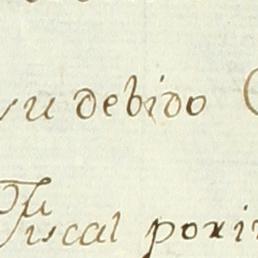 su debido
Fiscal por